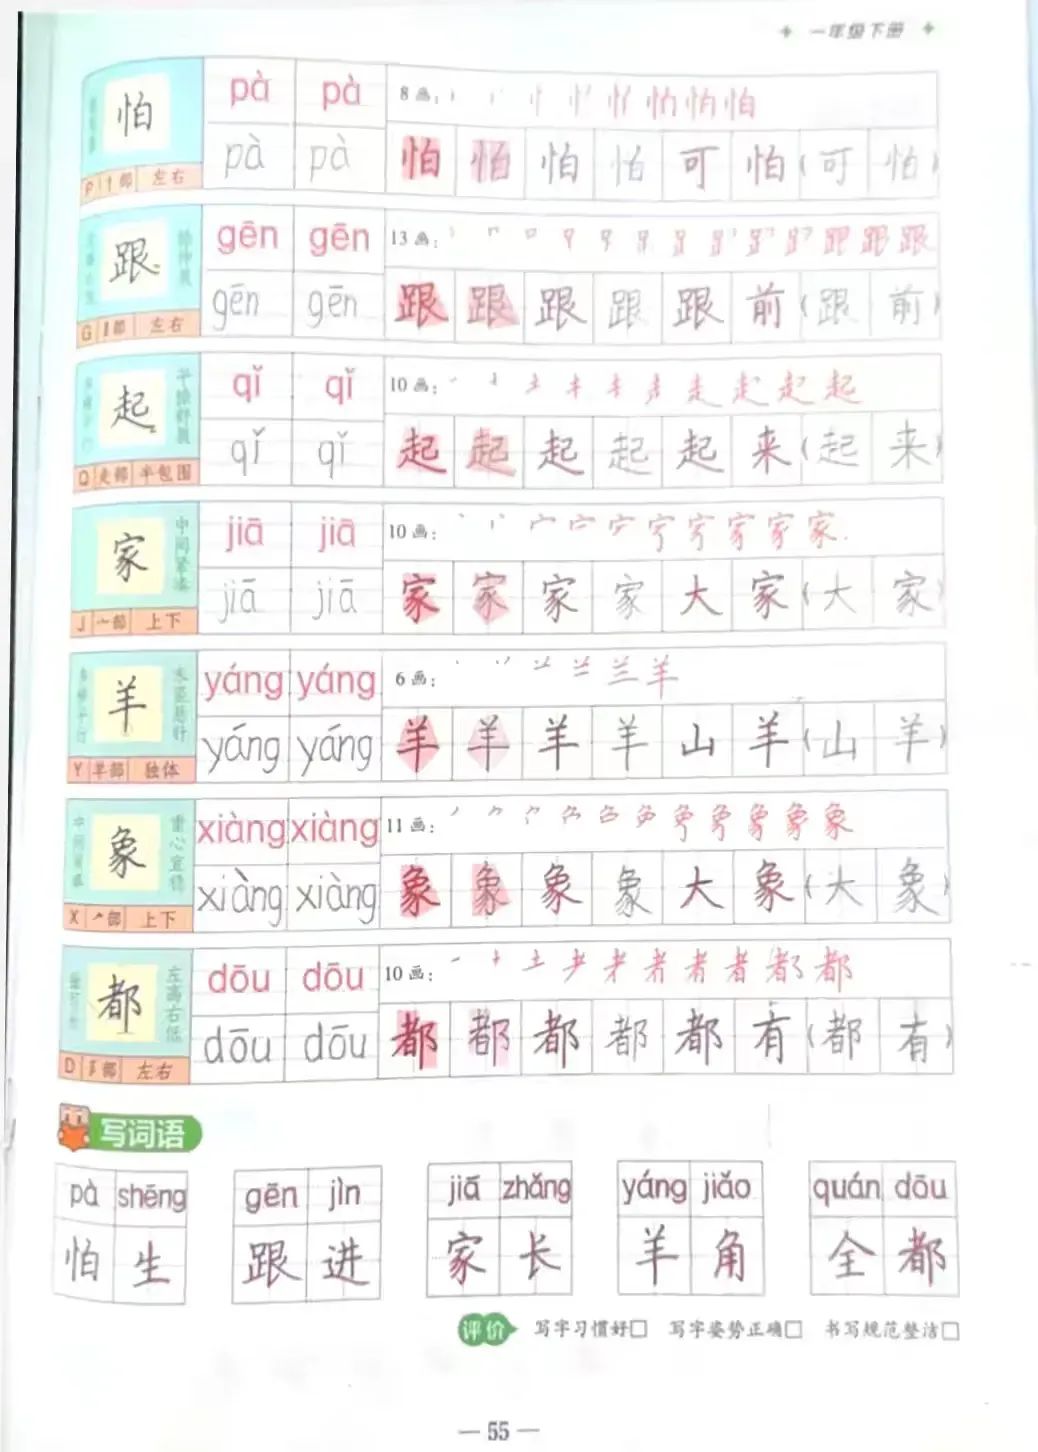 一年级下册
怕 pà pà 8画: 怕
pà pà 怕 怕 怕 怕 可 怕 (可 怕)
P 忄部 左右
跟 gēn gēn 13画: 跟 跟
gēn gēn 跟 跟 跟 跟 跟 前 (跟 前)
G 部 左右
起 qǐ qǐ 10画: 走 起 起
qǐ qǐ 起 起 起 起 起 来 (起 来)
Q 走部 半包围
家 中间紧凑 jiā jiā 10画: 宀 家 家
jiā jiā 家 家 家 家 大 家 (大 家)
J 宀部 上下
羊 yáng yáng 6画: 丷 兰 羊
yáng yáng 羊 羊 羊 羊 山 羊 (山 羊)
Y 羊部 独体
象 重心宜稳 xiàng xiàng 11画: 象 象
xiàng xiàng 象 象 象 象 大 象 (大 象)
X 部 上下
都 左高右低 dōu dōu 10画: 一 十 土 耂 者 者 都
dōu dōu 都 都 都 都 都 有 (都 有)
D 阝部 左右
写词语
pà shēng gēn jìn jiā zhǎng yáng jiǎo quán dōu
怕 生 跟 进 家 长 羊 角 全 都
评价 写字习惯好□ 写字姿势正确□ 书写规范整洁□
— 55 —